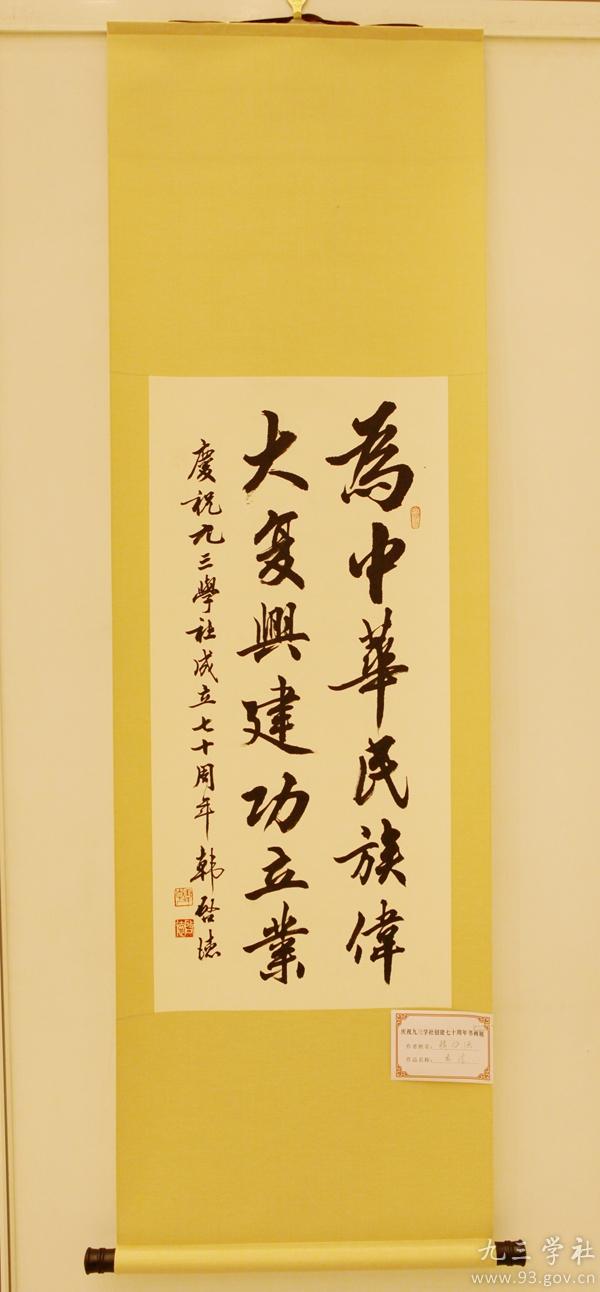 為中華民族偉
大复興建功立業
慶祝九三學社成立七十周年 韓啓德
庆祝九三学社创建七十周年书画展
作者姓名：
作品名称：
九三学社
www.93.gov.cn